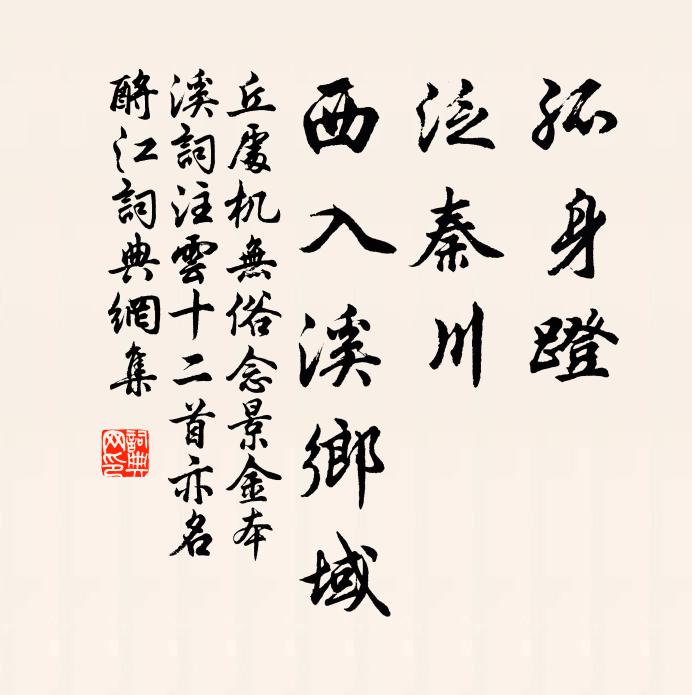 孤身蹬
泛秦川
西入溪鄉域
丘處机無俗念景金本
溪詞注雲十二首亦名
酹江詞典網集
詞典網印